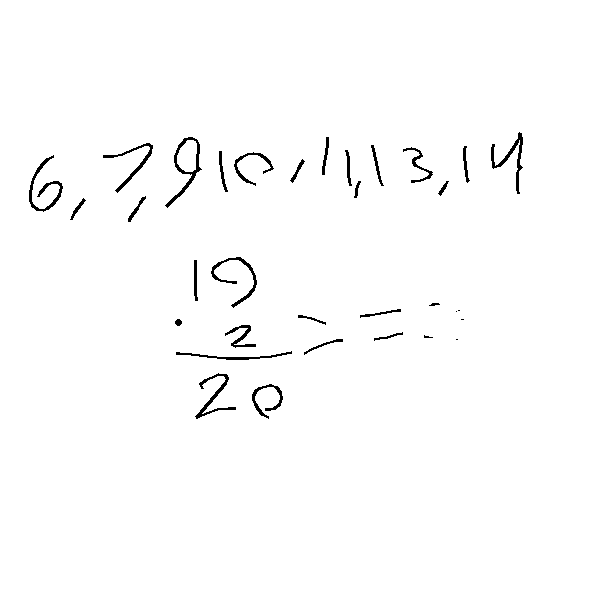 6, 7, 9 10, 11, 13, 14
19
. 2
20